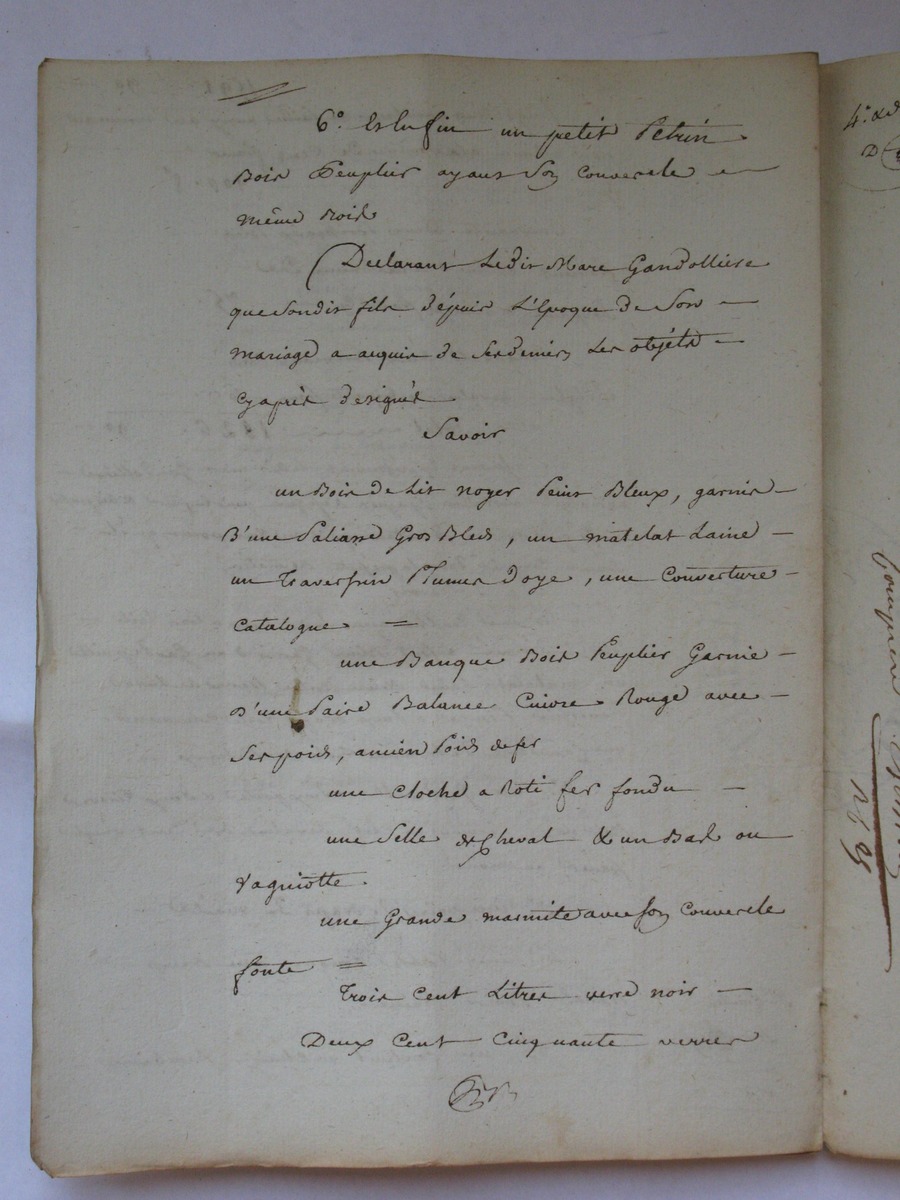 6.° Et Enfin un petit Pétrin
Bois Peuplier ayant Son Couvercle
même Bois
Declarant Ledit Marc Gandolliere
que Sondit fils dépuis L'époque de Son
mariage a acquis de Ses deniers Les objéts
cy après designés
Savoir
un Bois de Lit noyer Peint Bleux, garnis
D'une Paliasse Gros Bleds, un matelat Laine
un Traversin Plumes Doye, une Couverture
Catalogue =
une Banque Bois Peuplier Garnie
D'une Paire Balance Cuivre Rouge avec
Ses poids, ancien Poids de fer
une Cloche a Roti fer fondu
une Selle de Cheval & un Bast ou
une Grande marmite avec Son Couvercle
fonte =
Trois Cent Litres verre noir
Deux Cent Cinquante verres